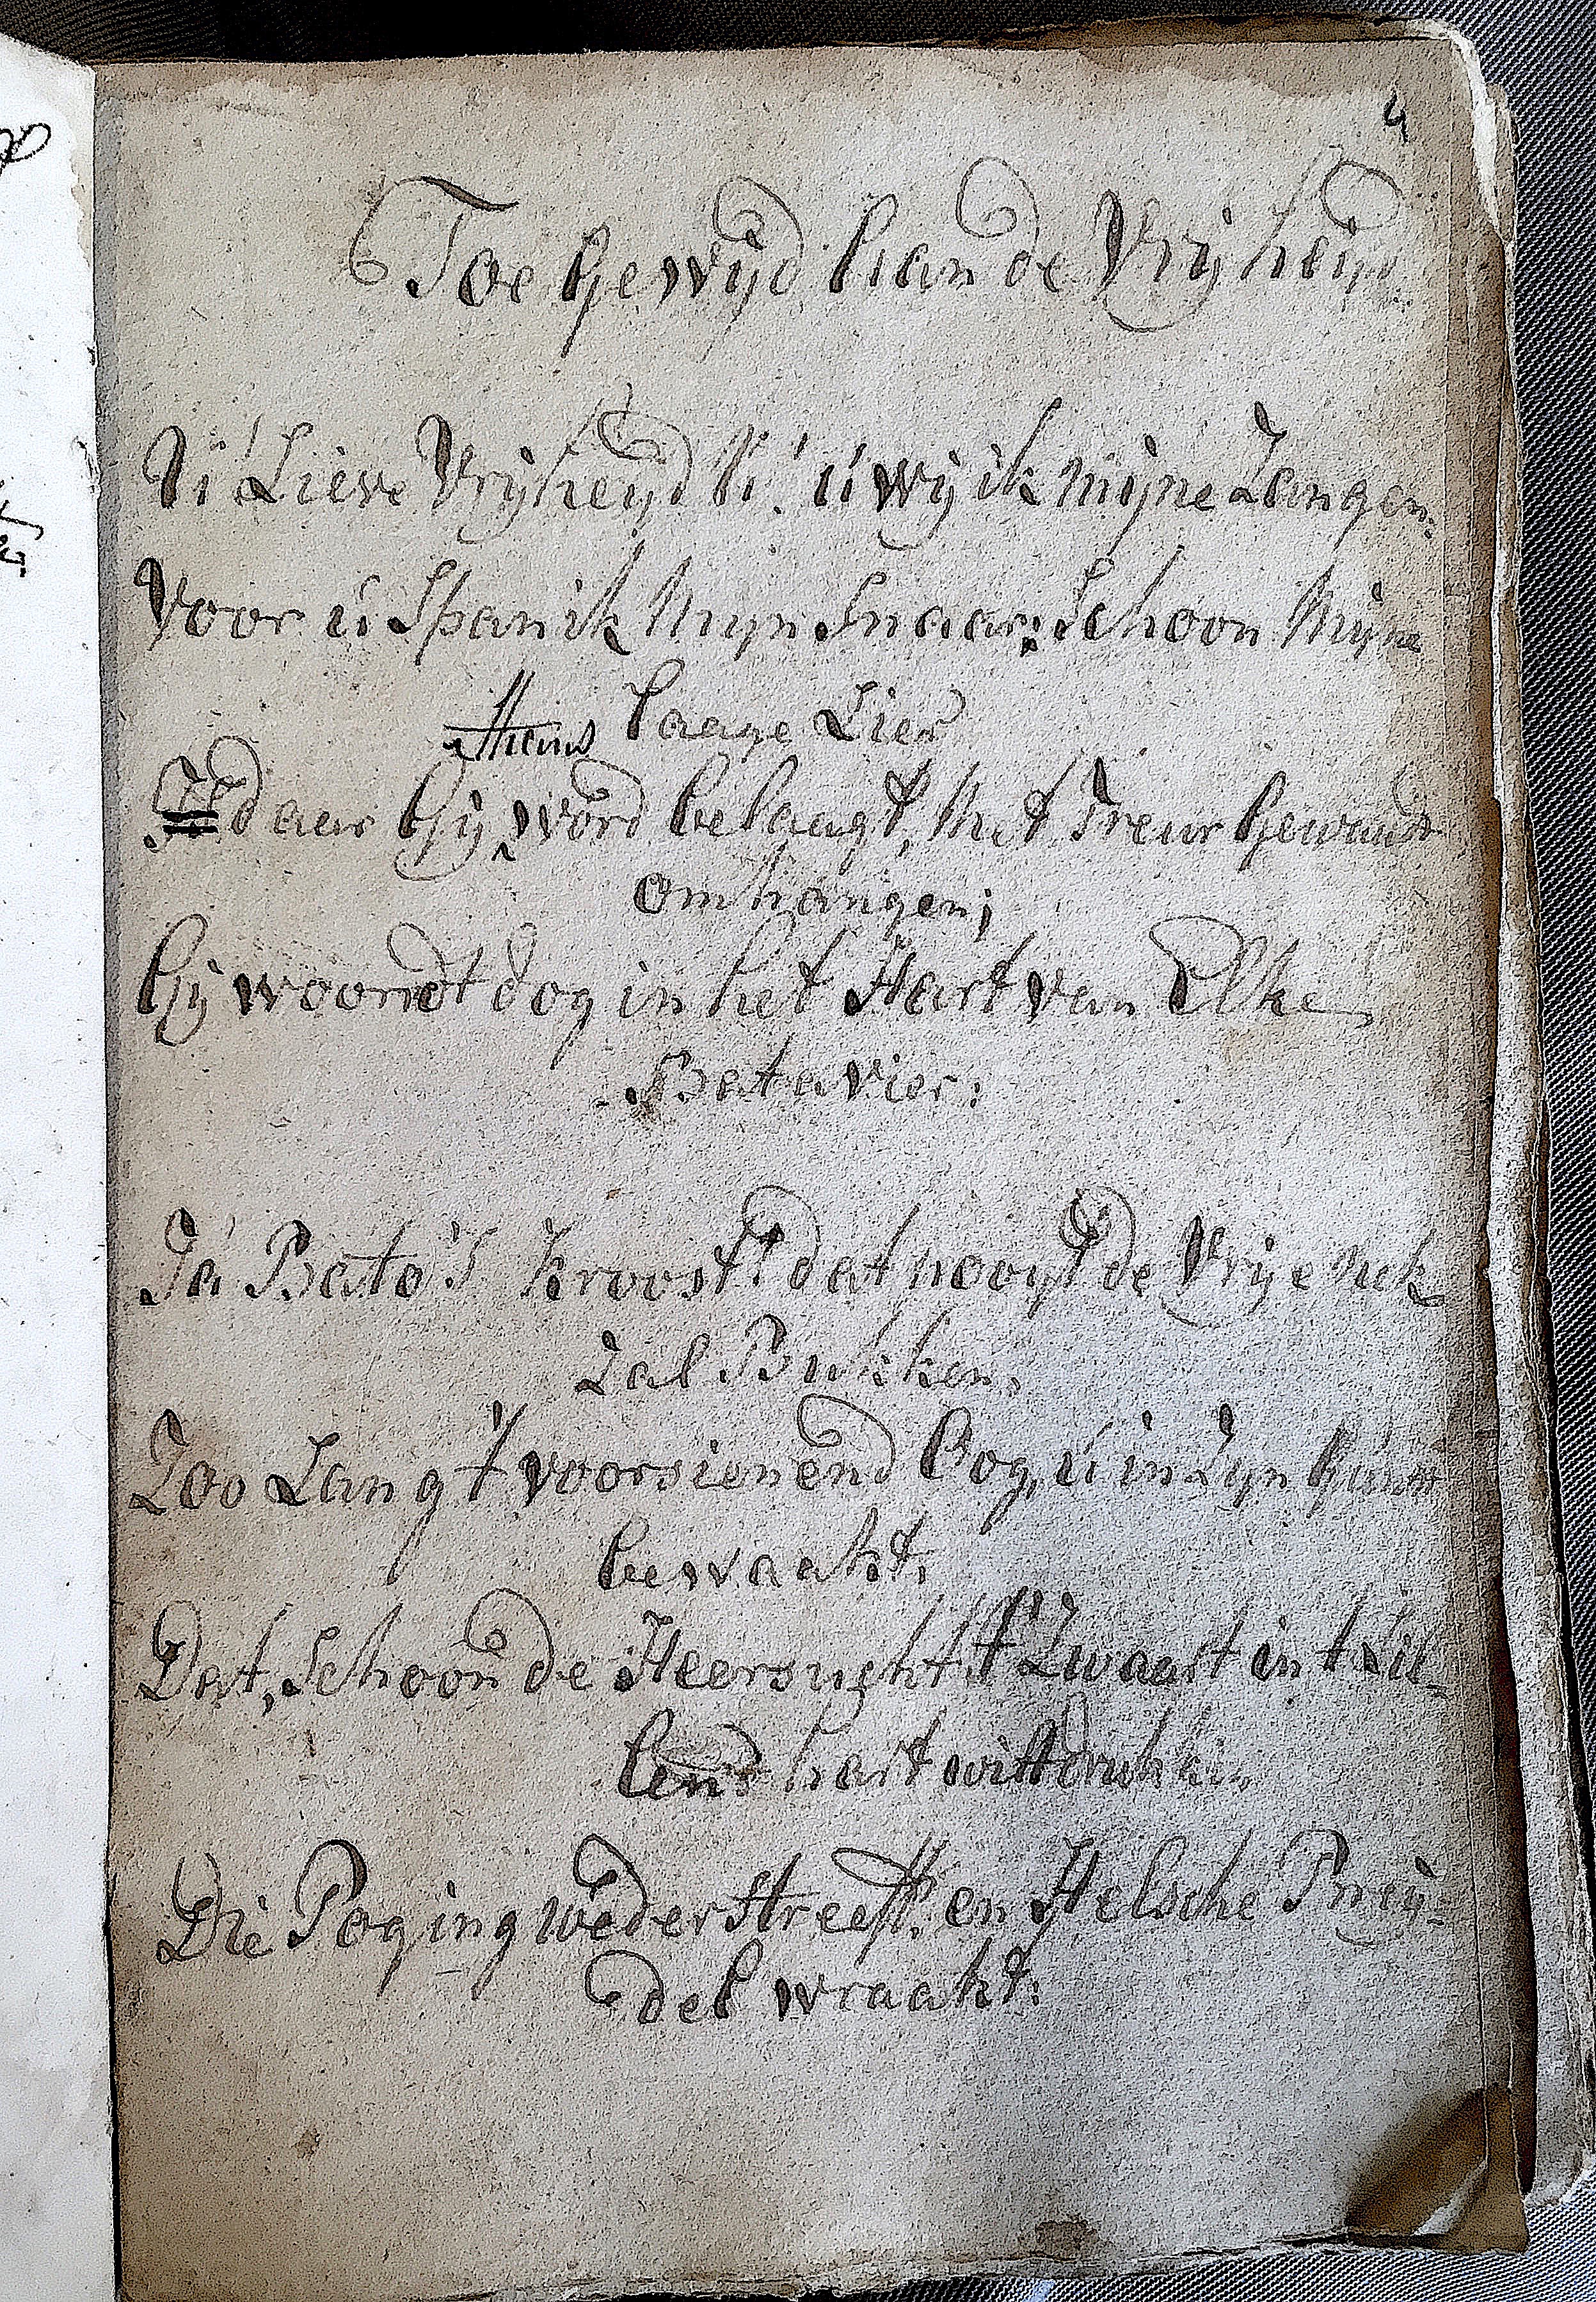 4
Toe Gewijd aan de Vrijheijd
U! Lieve Vrijheijd U! u wij ik Mijne Zangen.
Voor u Span ik Mijn Snaar; Schoon Mijne
laage Lier
daar Gij word belaagt, Met Treur Gewaad
omhangen;
Gij woondt dog in het Hart van Elke
Batavier:
Ja Bato's Kroost! dat nooyt de Vrije Nek
Zal Bukken,
Zoo Lang 't voorsienend Oog, u in Zijn Gunst
bewaakt,
Dat, Schoon de Heersught 't Zwaart in 't
hart
Die Poging wederstreeft, en Helsche Pney-
del wraakt: